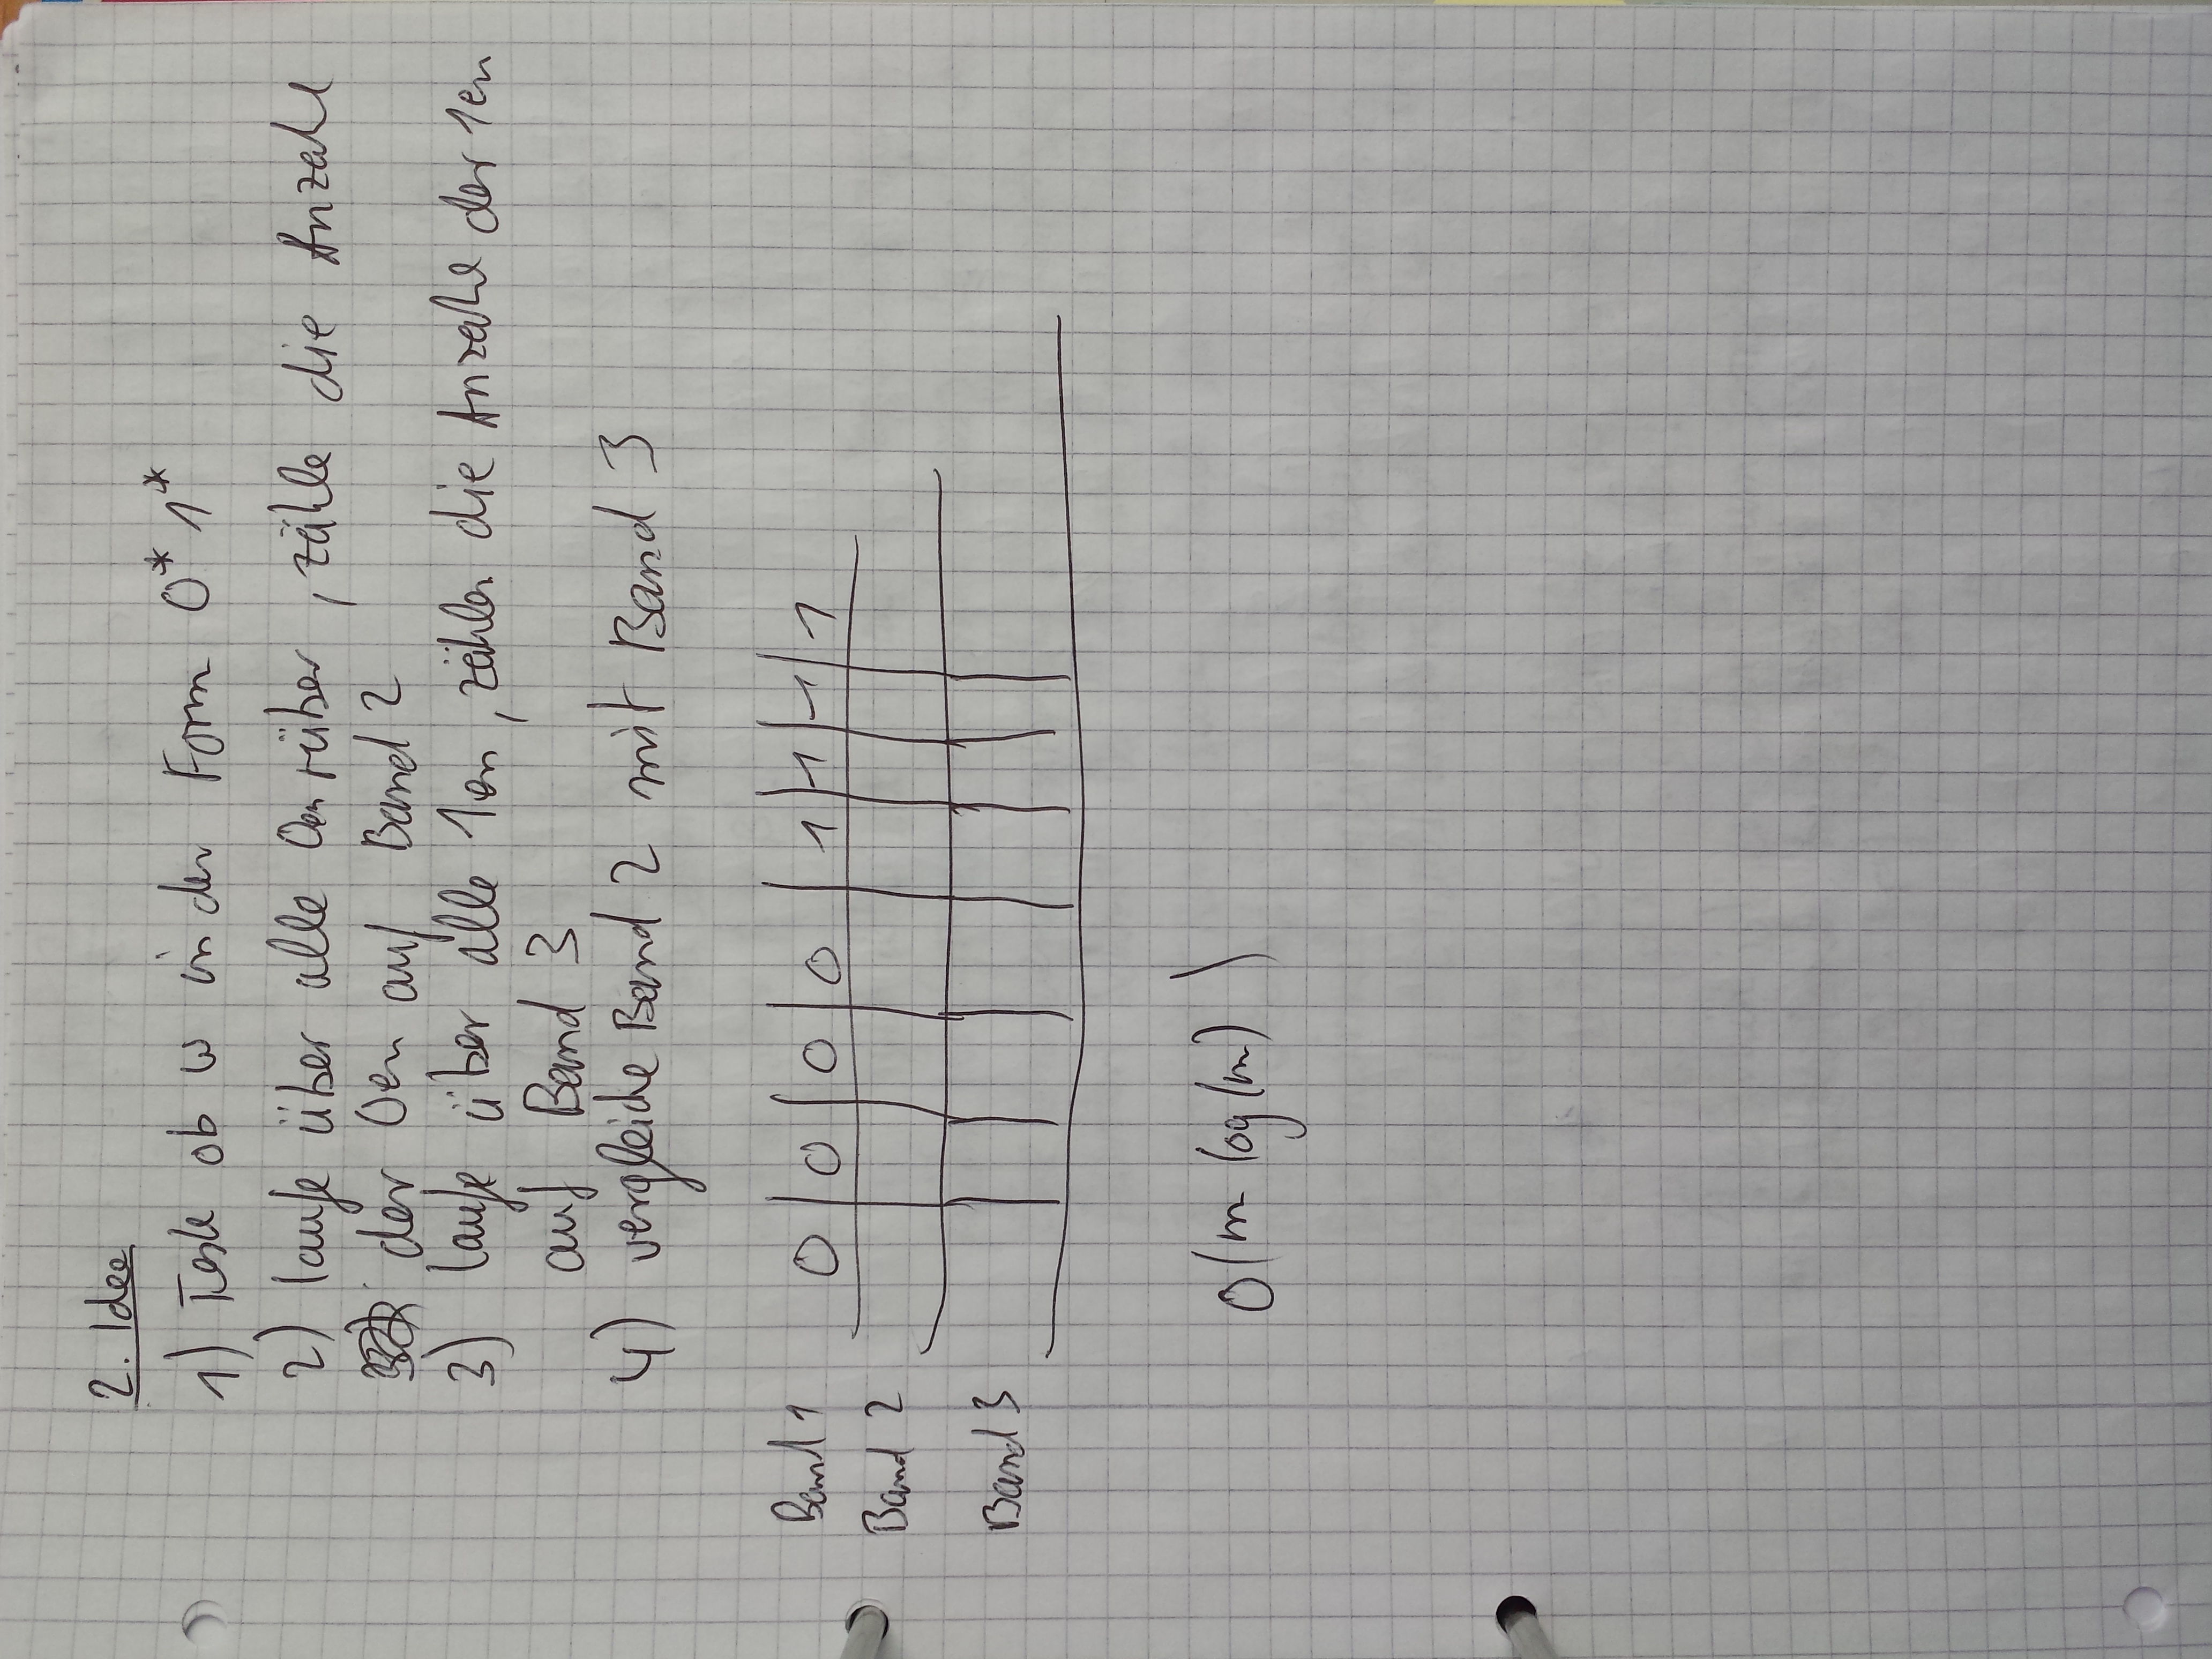 2. Idee
1) Teste ob w in der Form 0* 1*
2) laufe über alle 0en rüber, zähle die Anzahl
der 0en auf Band 2
3) laufe über alle 1en, zähle die Anzahl der 1en
auf Band 3
4) vergleiche Band 2 mit Band 3
Band 1 0 0 0 0 1 1 1 1
Band 2
Band 3
O(n log(n))